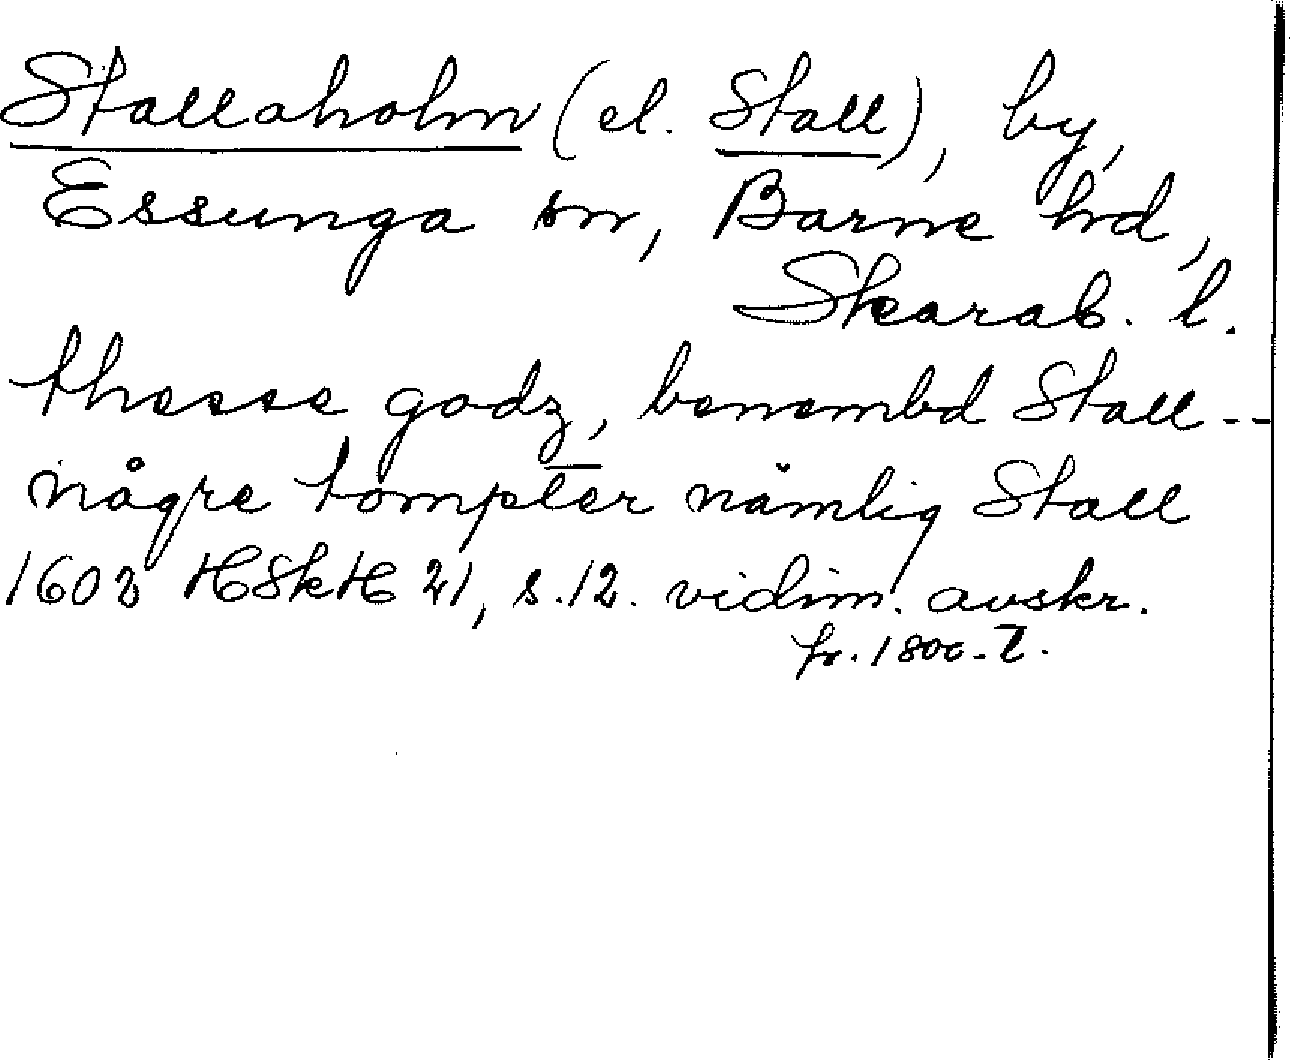 Stallaholm (el. Stall), by,
Essunga sn, Barne hd,
Skarab. l.
thesse godz, benembd Stall --
någre tompter nämlig Stall
1602 HSkH 21, s.12. vidim. avskr.
fr. 1800-t.